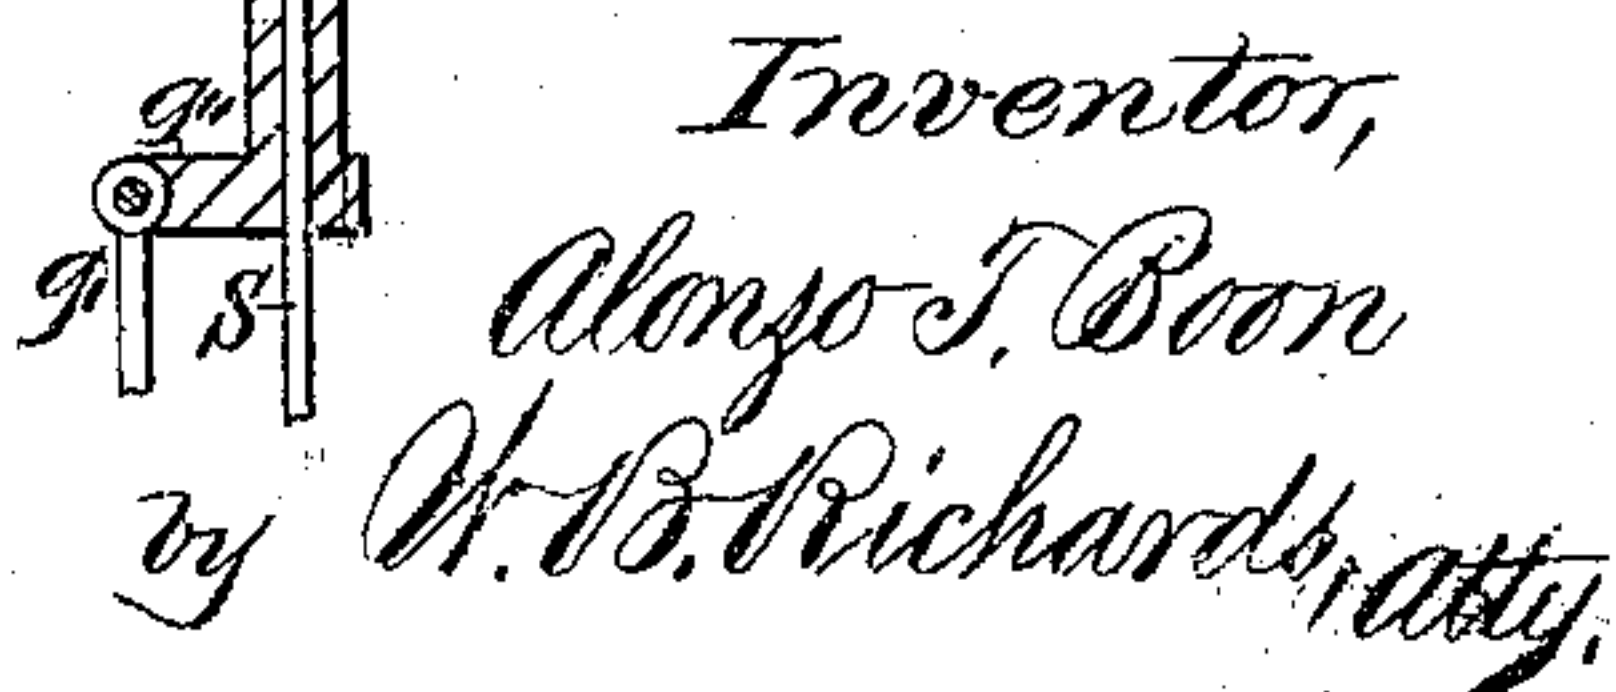 g'''
Inventor,
g'
S
Alonzo T. Boon
by W. B. Richards, Atty.